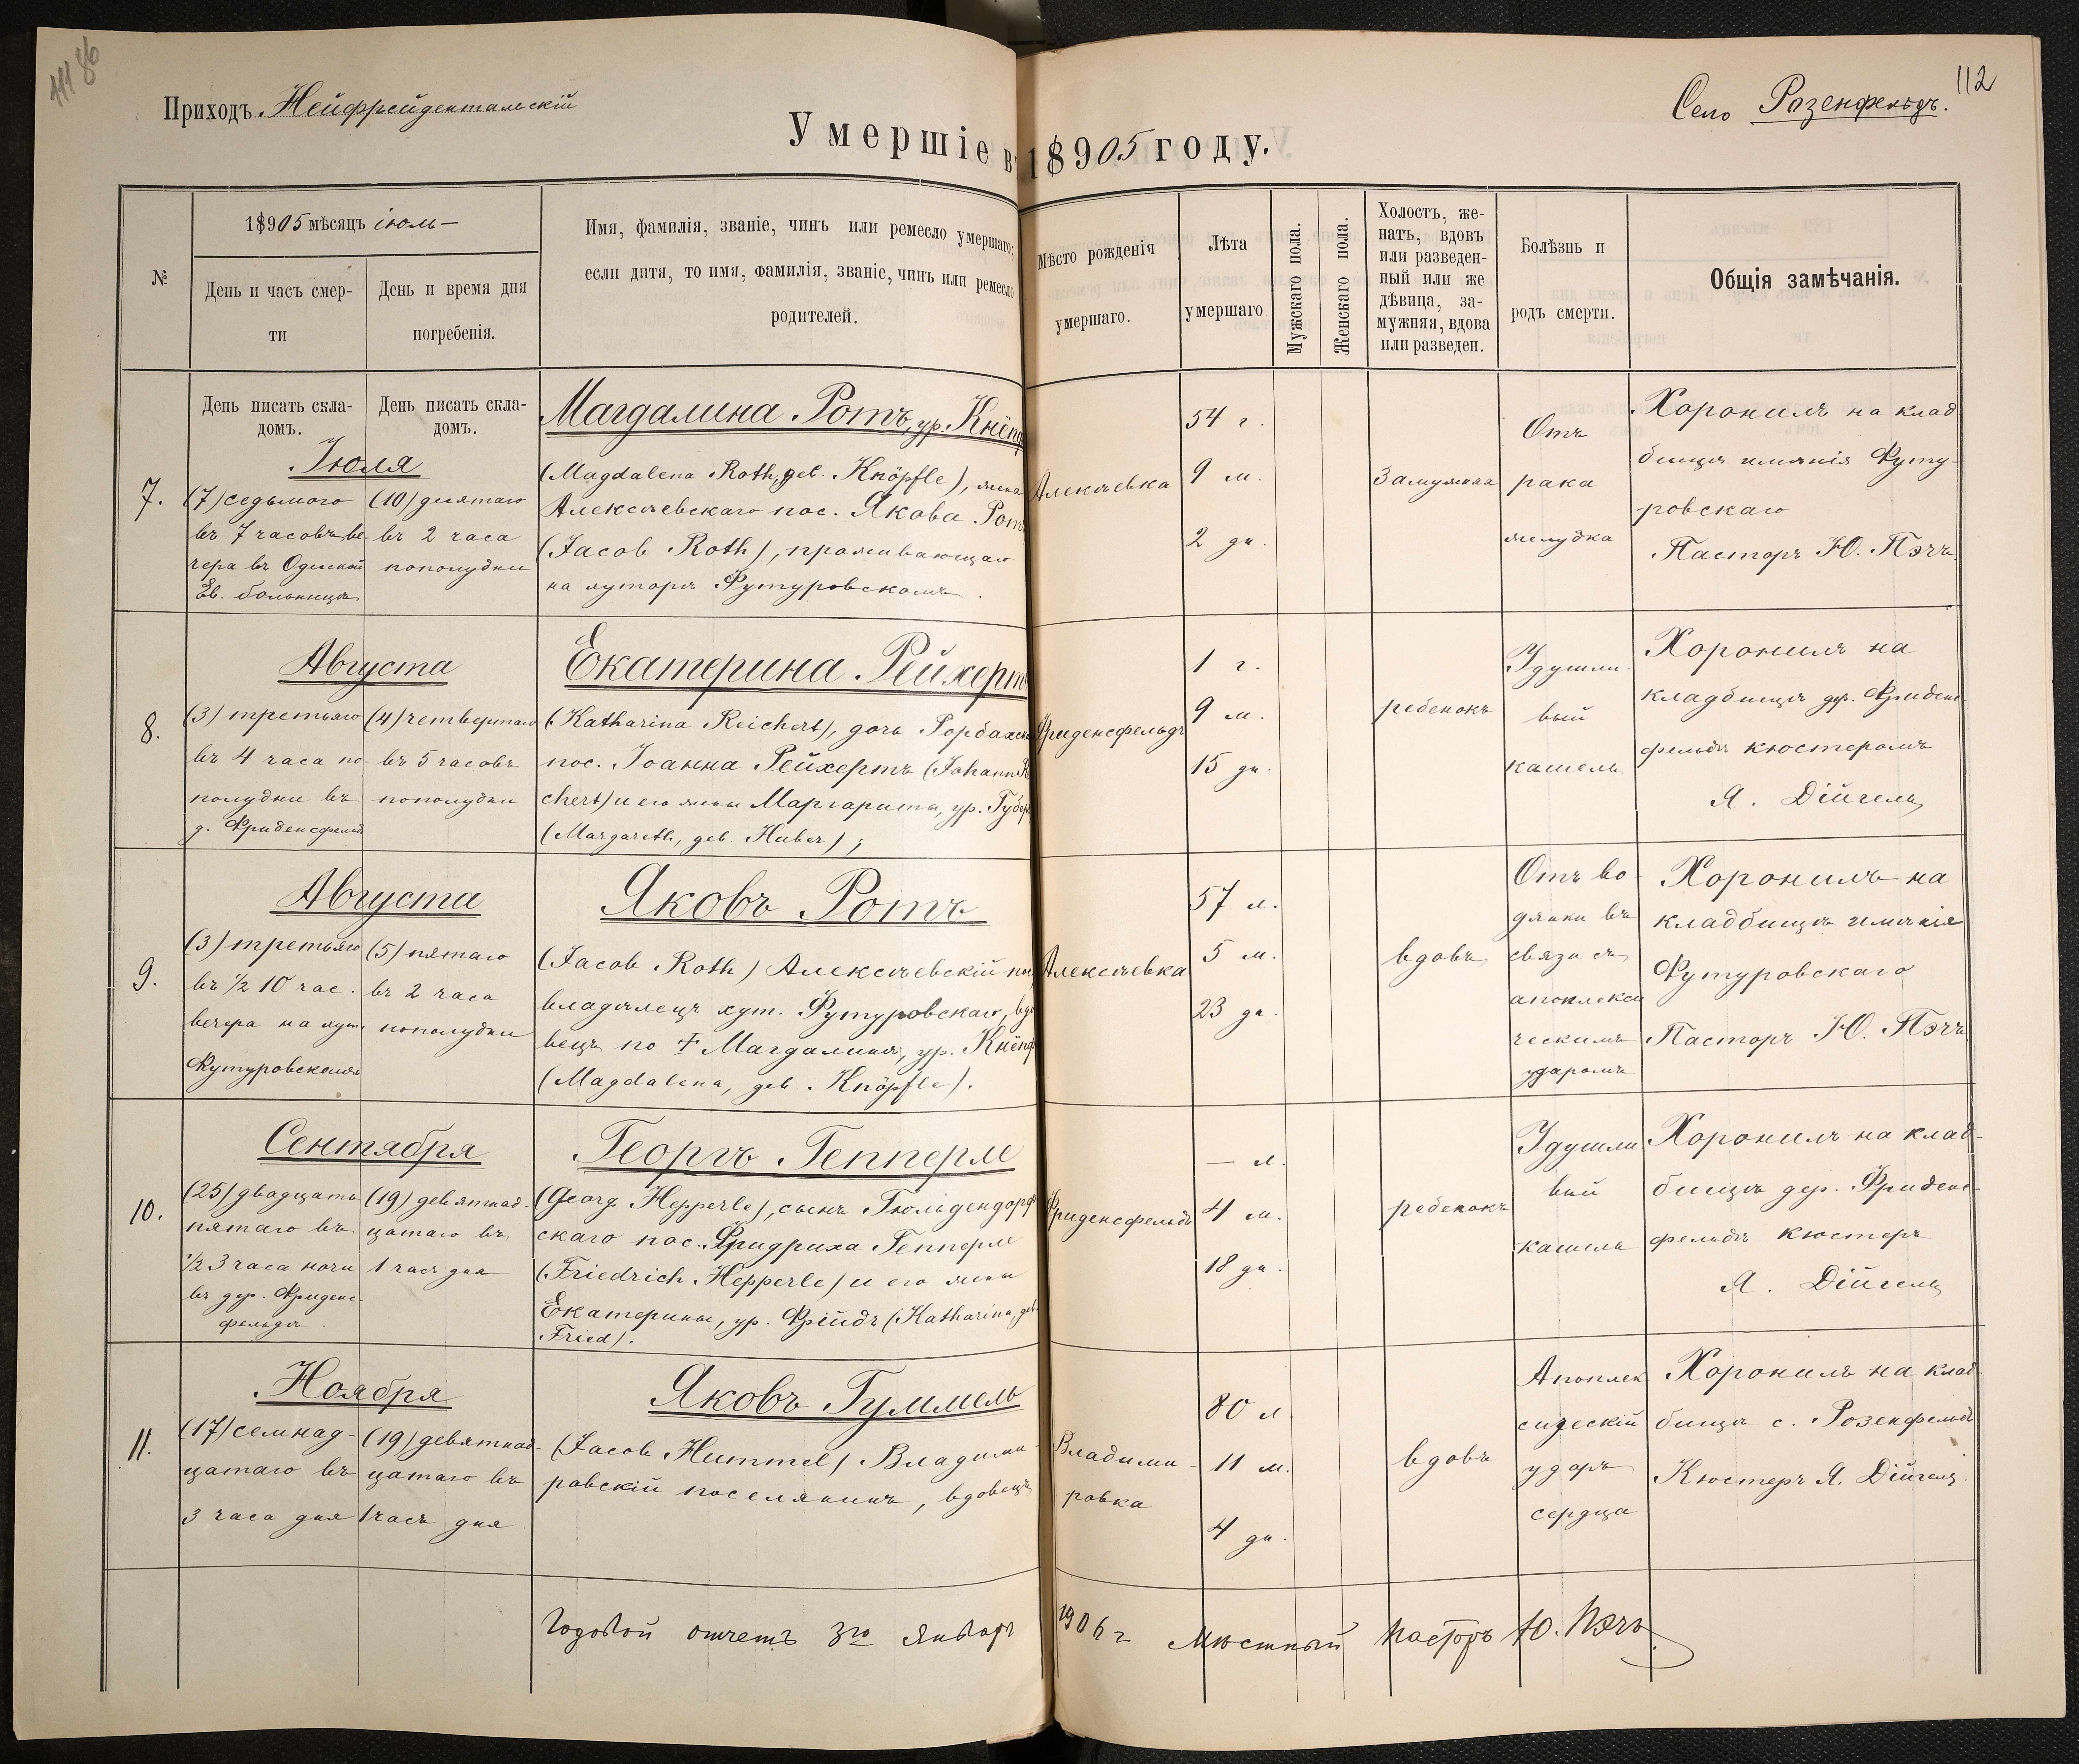 111 86
Приходъ Нейфрейдентальскій
Село Розенфельдъ.
112
Умершіе въ 18905 году.
№
18905 мѣсяцъ іюль
День и часъ смер-
ти
День и время дня
погребенія.
Имя, фамилія, званіе, чинъ или ремесло умершаго;
если дитя, то имя, фамилія, званіе, чинъ или ремесло
родителей.
Мѣсто рожденія
умершаго.
Лѣта
умершаго
Мужскаго пола.
Женскаго пола.
Холостъ, же-
натъ, вдовъ
или разведен-
ный или же
дѣвица, за-
мужняя, вдова
или разведен.
Болѣзнь и
родъ смерти.
Общія замѣчанія.
День писать скла-
домъ.
День писать скла-
домъ.
7.
Іюля
(7) седьмого
въ 7 часовъ ве-
чера въ Одесской
Ев. больницѣ
(10) десятаго
въ 2 часа
пополудни
Магдалина Ротъ, ур. Кнёпф
(Magdalena Roth, geb. Knöpfle), жена
Алексѣевскаго пос. Якова Ротъ
(Jacob Roth), проживающаго
на хуторѣ Футуровскомъ.
Алексѣевка
54 г.
9 м.
2 дн.
Замужняя
Отъ
рака
желудка
Хоронилъ на клад
бищѣ имѣнія Футу-
ровскаго
Пасторъ Ю. Пэчъ.
8.
Августа
(3) третьяго
въ 4 часа по-
полудни въ
д. Фриденсфельдѣ
(4) четвертаго
въ 5 часовъ
пополудни
Екатерина Рейхертъ
(Katharina Reichert), дочь Рорбахск
пос. Іоанна Рейхертъ (Johann Rei
chert) и его жены Маргариты, ур. Губеръ
(Margareth, geb. Huber);
Фриденсфельдъ
1 г.
9 м.
15 дн.
ребенокъ
Удушли-
вый
кашель
Хоронилъ на
кладбищѣ др. Фриденс
фельдъ кюстеромъ
Я. Дійчель
9.
Августа
(3) третьяго
въ 1/2 10 час.
вечера на хут.
Футуровскомъ
(5) пятаго
въ 2 часа
пополудни
Яковъ Ротъ
(Jacob Roth) Алексѣевскій пос.
владѣлецъ хут. Футуровскаго, вдо
вецъ по † Магдалинѣ, ур. Кнёпф
(Magdalena, geb. Knöpfle).
Алексѣевка
57 л.
5 м.
23 дн.
вдовъ
Отъ во-
дянки въ
связи съ
апоплекси
ческимъ
ударомъ
Хоронилъ на
кладбищѣ имѣнія
Футуровскаго
Пасторъ Ю. Пэчъ.
10.
Сентября
(25) двадцать
пятаго въ
1/2 3 часа ночи
въ дер. Фриденс-
фельдѣ.
(19) девятнад-
цатаго въ
1 часъ дня
Георгъ Гепперле
(Georg Hepperle), сынъ Гюльдендорф
скаго пос. Фридриха Гепперле
(Friedrich Hepperle) и его жены
Екатерины, ур. Фрійдъ (Katharina, geb.
Fried).
Фриденсфельдъ
— л.
4 м.
18 дн.
ребенокъ
Удушли
вый
кашель
Хоронилъ на клад-
бищѣ дер. Фриденс-
фельдъ кюстеръ
Я. Дійчель
11.
Ноября
(17) семнад-
цатаго въ
3 часа дня
(19) девятнад-
цатаго въ
1 часъ дня
Яковъ Гуммель
(Jacob Hummel) Владими-
ровскій поселянинъ, вдовецъ
Владими-
ровка
80 л.
11 м.
4 дн.
вдовъ
Апоплек
сическій
ударъ
сердца
Хоронилъ на клад
бищѣ с. Розенфельдъ
Кюстеръ Я. Дійчель.
Годовой отчетъ 3го Январь 1906 г Мѣстный пасторъ Ю. Пэчъ.